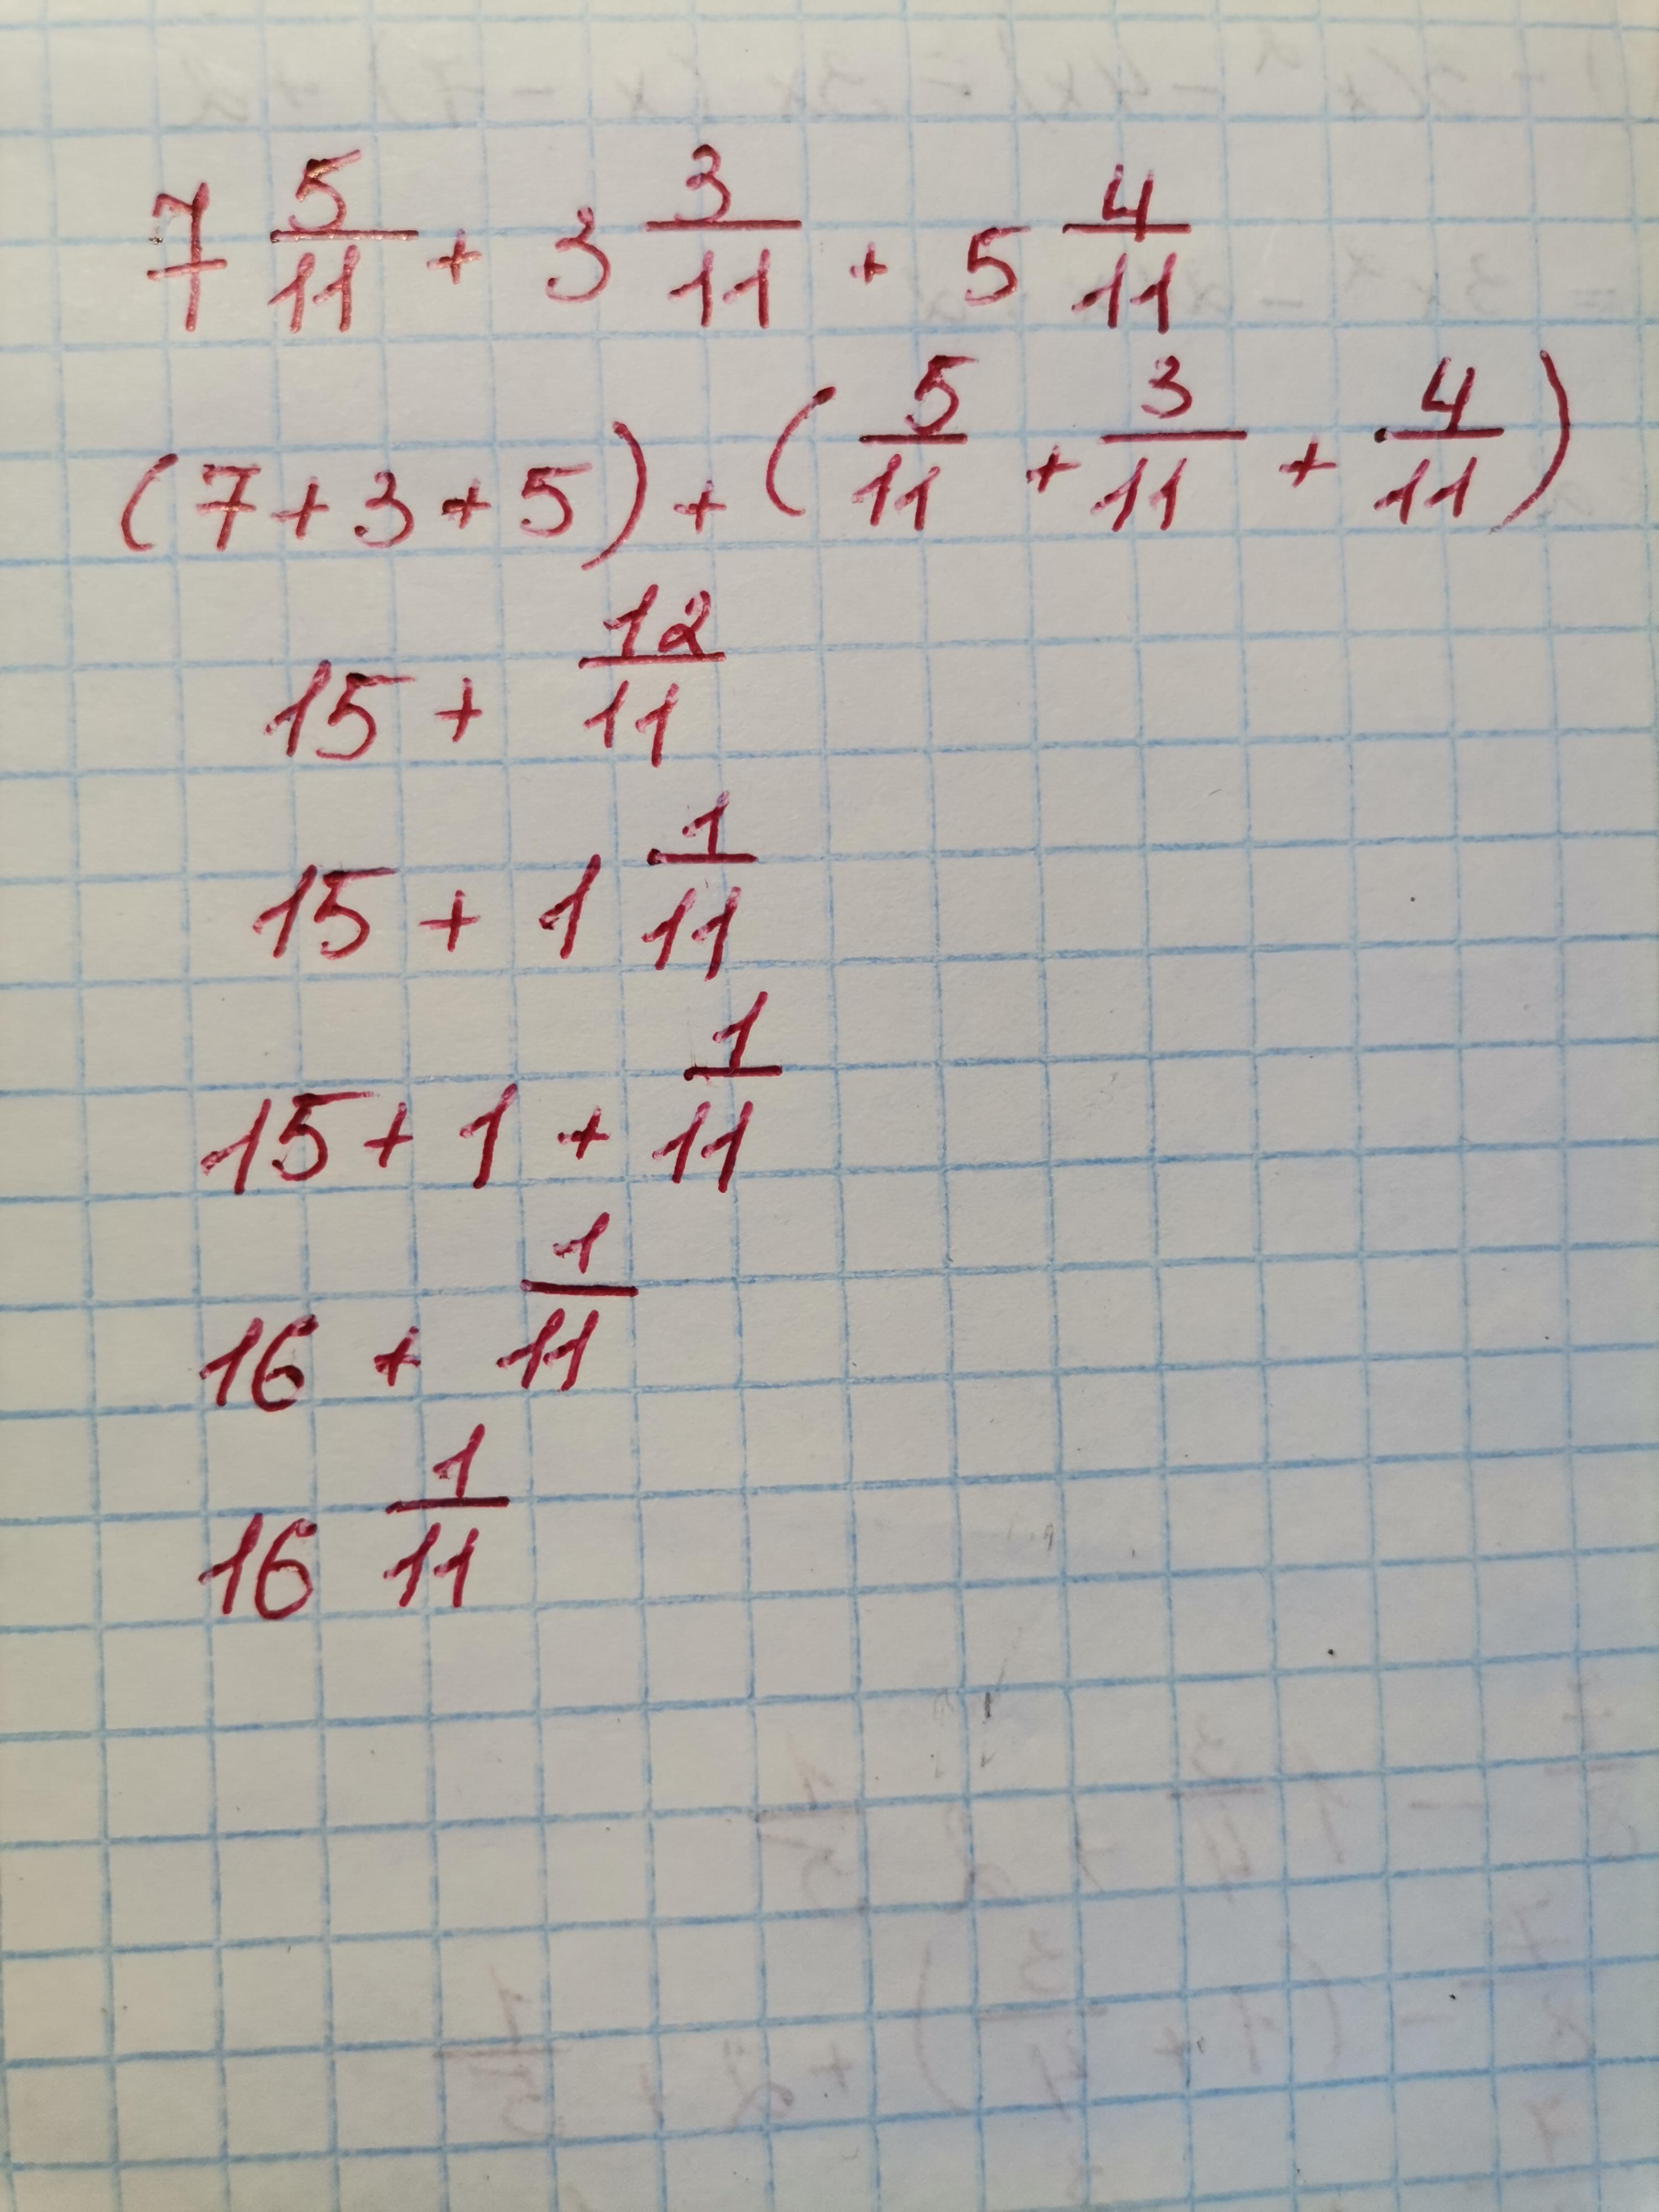 7 5/11 + 3 3/11 + 5 4/11
(7+3+5) + (5/11 + 3/11 + 4/11)
15 + 12/11
15 + 1 1/11
15 + 1 + 1/11
16 + 1/11
16 1/11